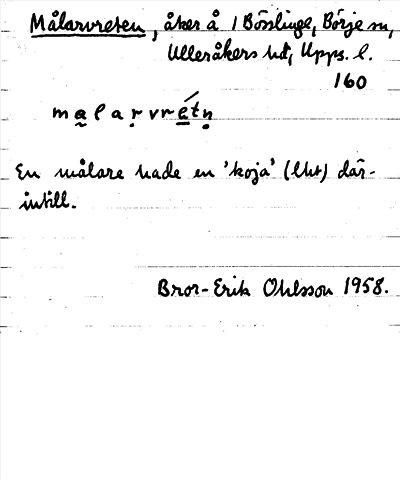 Målarvreten, åker å 1 Bösslinge, Börje sn,
Ulleråkers hd, Upps. l.
160
målarvrétn̥
En målare hade en 'koja' (lht) där-
intill.
Bror-Erik Ohlsson 1958.